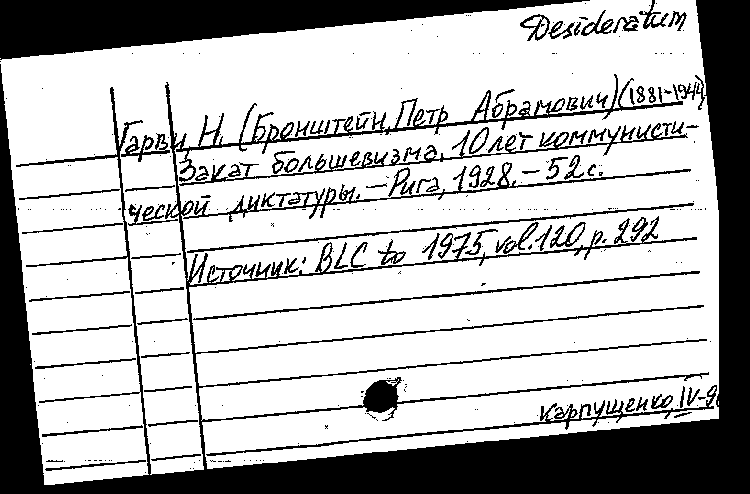 Desideratum
Гарви, Н. (Бронштейн, Петр Абрамович) (1881-1944)
Закат большевизма. 10 лет коммунисти-
ческой диктатуры. – Рига, 1928. – 52 с.
Источник: BLC to 1975, vol. 120, p. 292
Карпущенко, IV-9